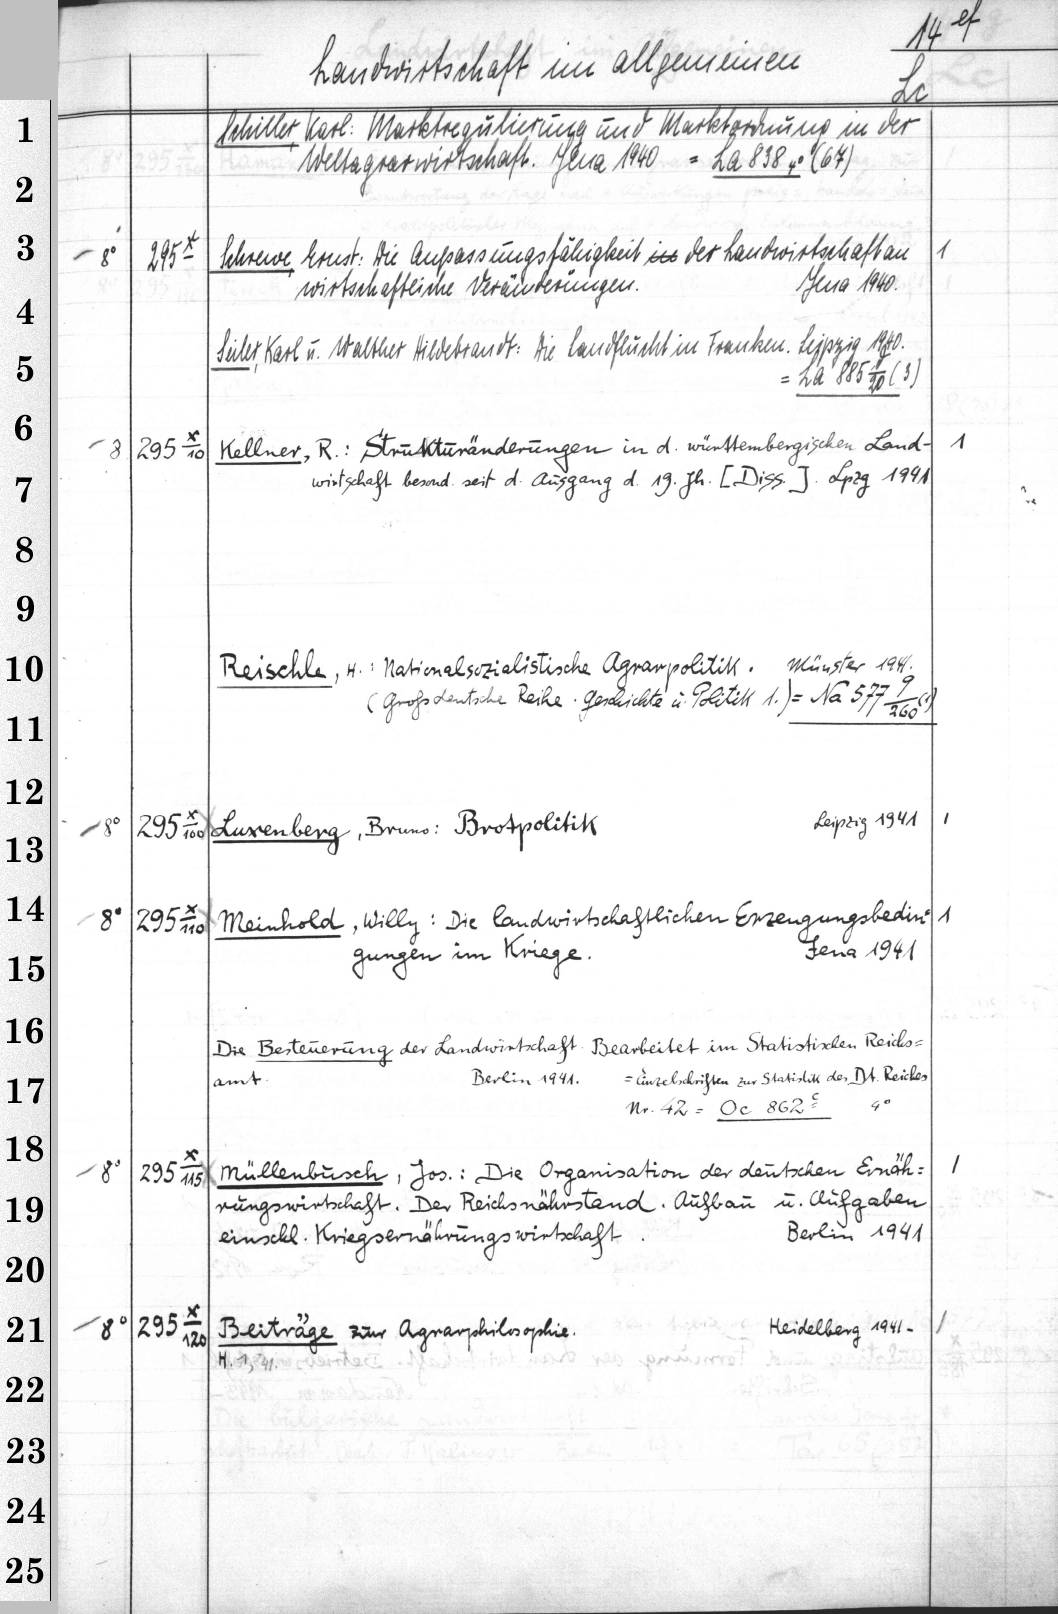 14 ef
Landwirtschaft im allgemeinen
Lc
1
Schiller, Karl: Marktregulierung und Marktordnung in der
Weltagrarwirtschaft. Jena 1940 = La 838 4° (67)
2
3
8° 295 x Schrewe, Ernst: Die Anpassungsfähigkeit der Landwirtschaft an 1
wirtschaftliche Veränderungen. Jena 1940.
4
Seiler, Karl u. Walther Hildebrandt: Die Landflucht in Franken. Leipzig 1940.
5
= La 885 /20 (3)
6
8 295 x/10 Kellner, R.: Strukturänderungen in d. württembergischen Land- 1
7
wirtschaft besond. seit d. Ausgang d. 19. Jh. [Diss.]. Lpzg 1941
8
9
10
Reischle, H.: Nationalsozialistische Agrarpolitik. Münster 1941.
(Großdeutsche Reihe. Geschichte u. Politik 1.) = Na 577 9/260 (1)
11
12
8° 295 x/100 Luxenberg, Bruno: Brotpolitik Leipzig 1941 1
13
14
8° 295 x/110 Meinhold, Willy: Die landwirtschaftlichen Erzeugungsbedin= 1
gungen im Kriege. Jena 1941
15
16
Die Besteuerung der Landwirtschaft. Bearbeitet im Statistischen Reichs=
17
amt. Berlin 1941. = Einzelschriften zur Statistik des Dt. Reiches
Nr. 42 = Oc 862 c 4°
18
8° 295 x/115 Müllenbusch, Jos.: Die Organisation der deutschen Ernäh= 1
19
rungswirtschaft. Der Reichsnährstand. Aufbau u. Aufgaben
einschl. Kriegsernährungswirtschaft. Berlin 1941
20
21
8° 295 x/120 Beiträge zur Agrarphilosophie. Heidelberg 1941- 1
H. 1, 41.
22
23
24
25